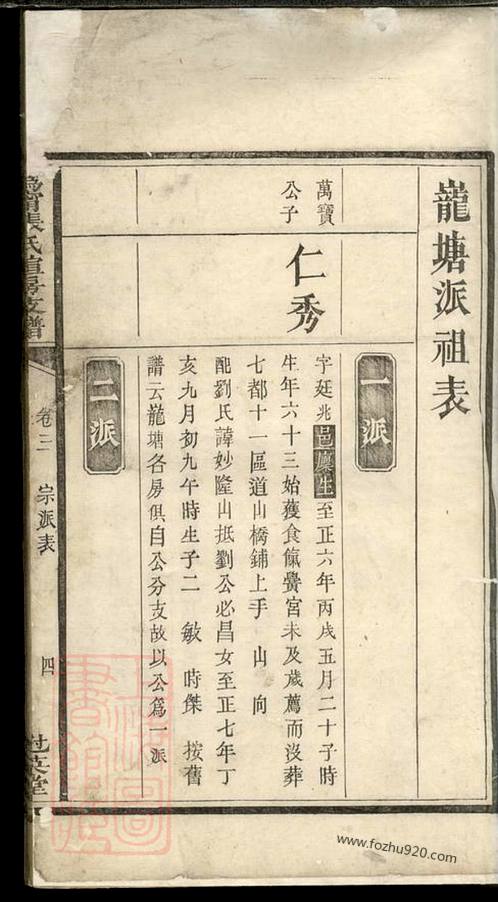 龍塘派祖表
萬寶
公子
仁秀
一派
字廷兆邑廩生至正六年丙戌五月二十子時
生年六十三始獲食餼黌宮未及歲薦而沒葬
七都十一區道山橋鋪上手 山 向
配劉氏諱妙隆山抵劉公必昌女至正七年丁
亥九月初九午時生子二 敏 時傑 按舊
譜云龍塘各房俱自公分支故以公爲一派
二派
張氏 房支譜
卷三
宗派表
四
英堂
www.fozhu920.com